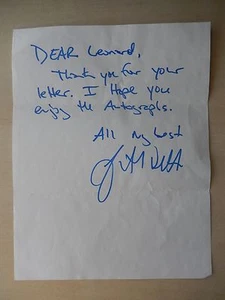 DEAR Leonard,
Thank you for your
letter. I Hope you
enjoy the Autographs.
All my best